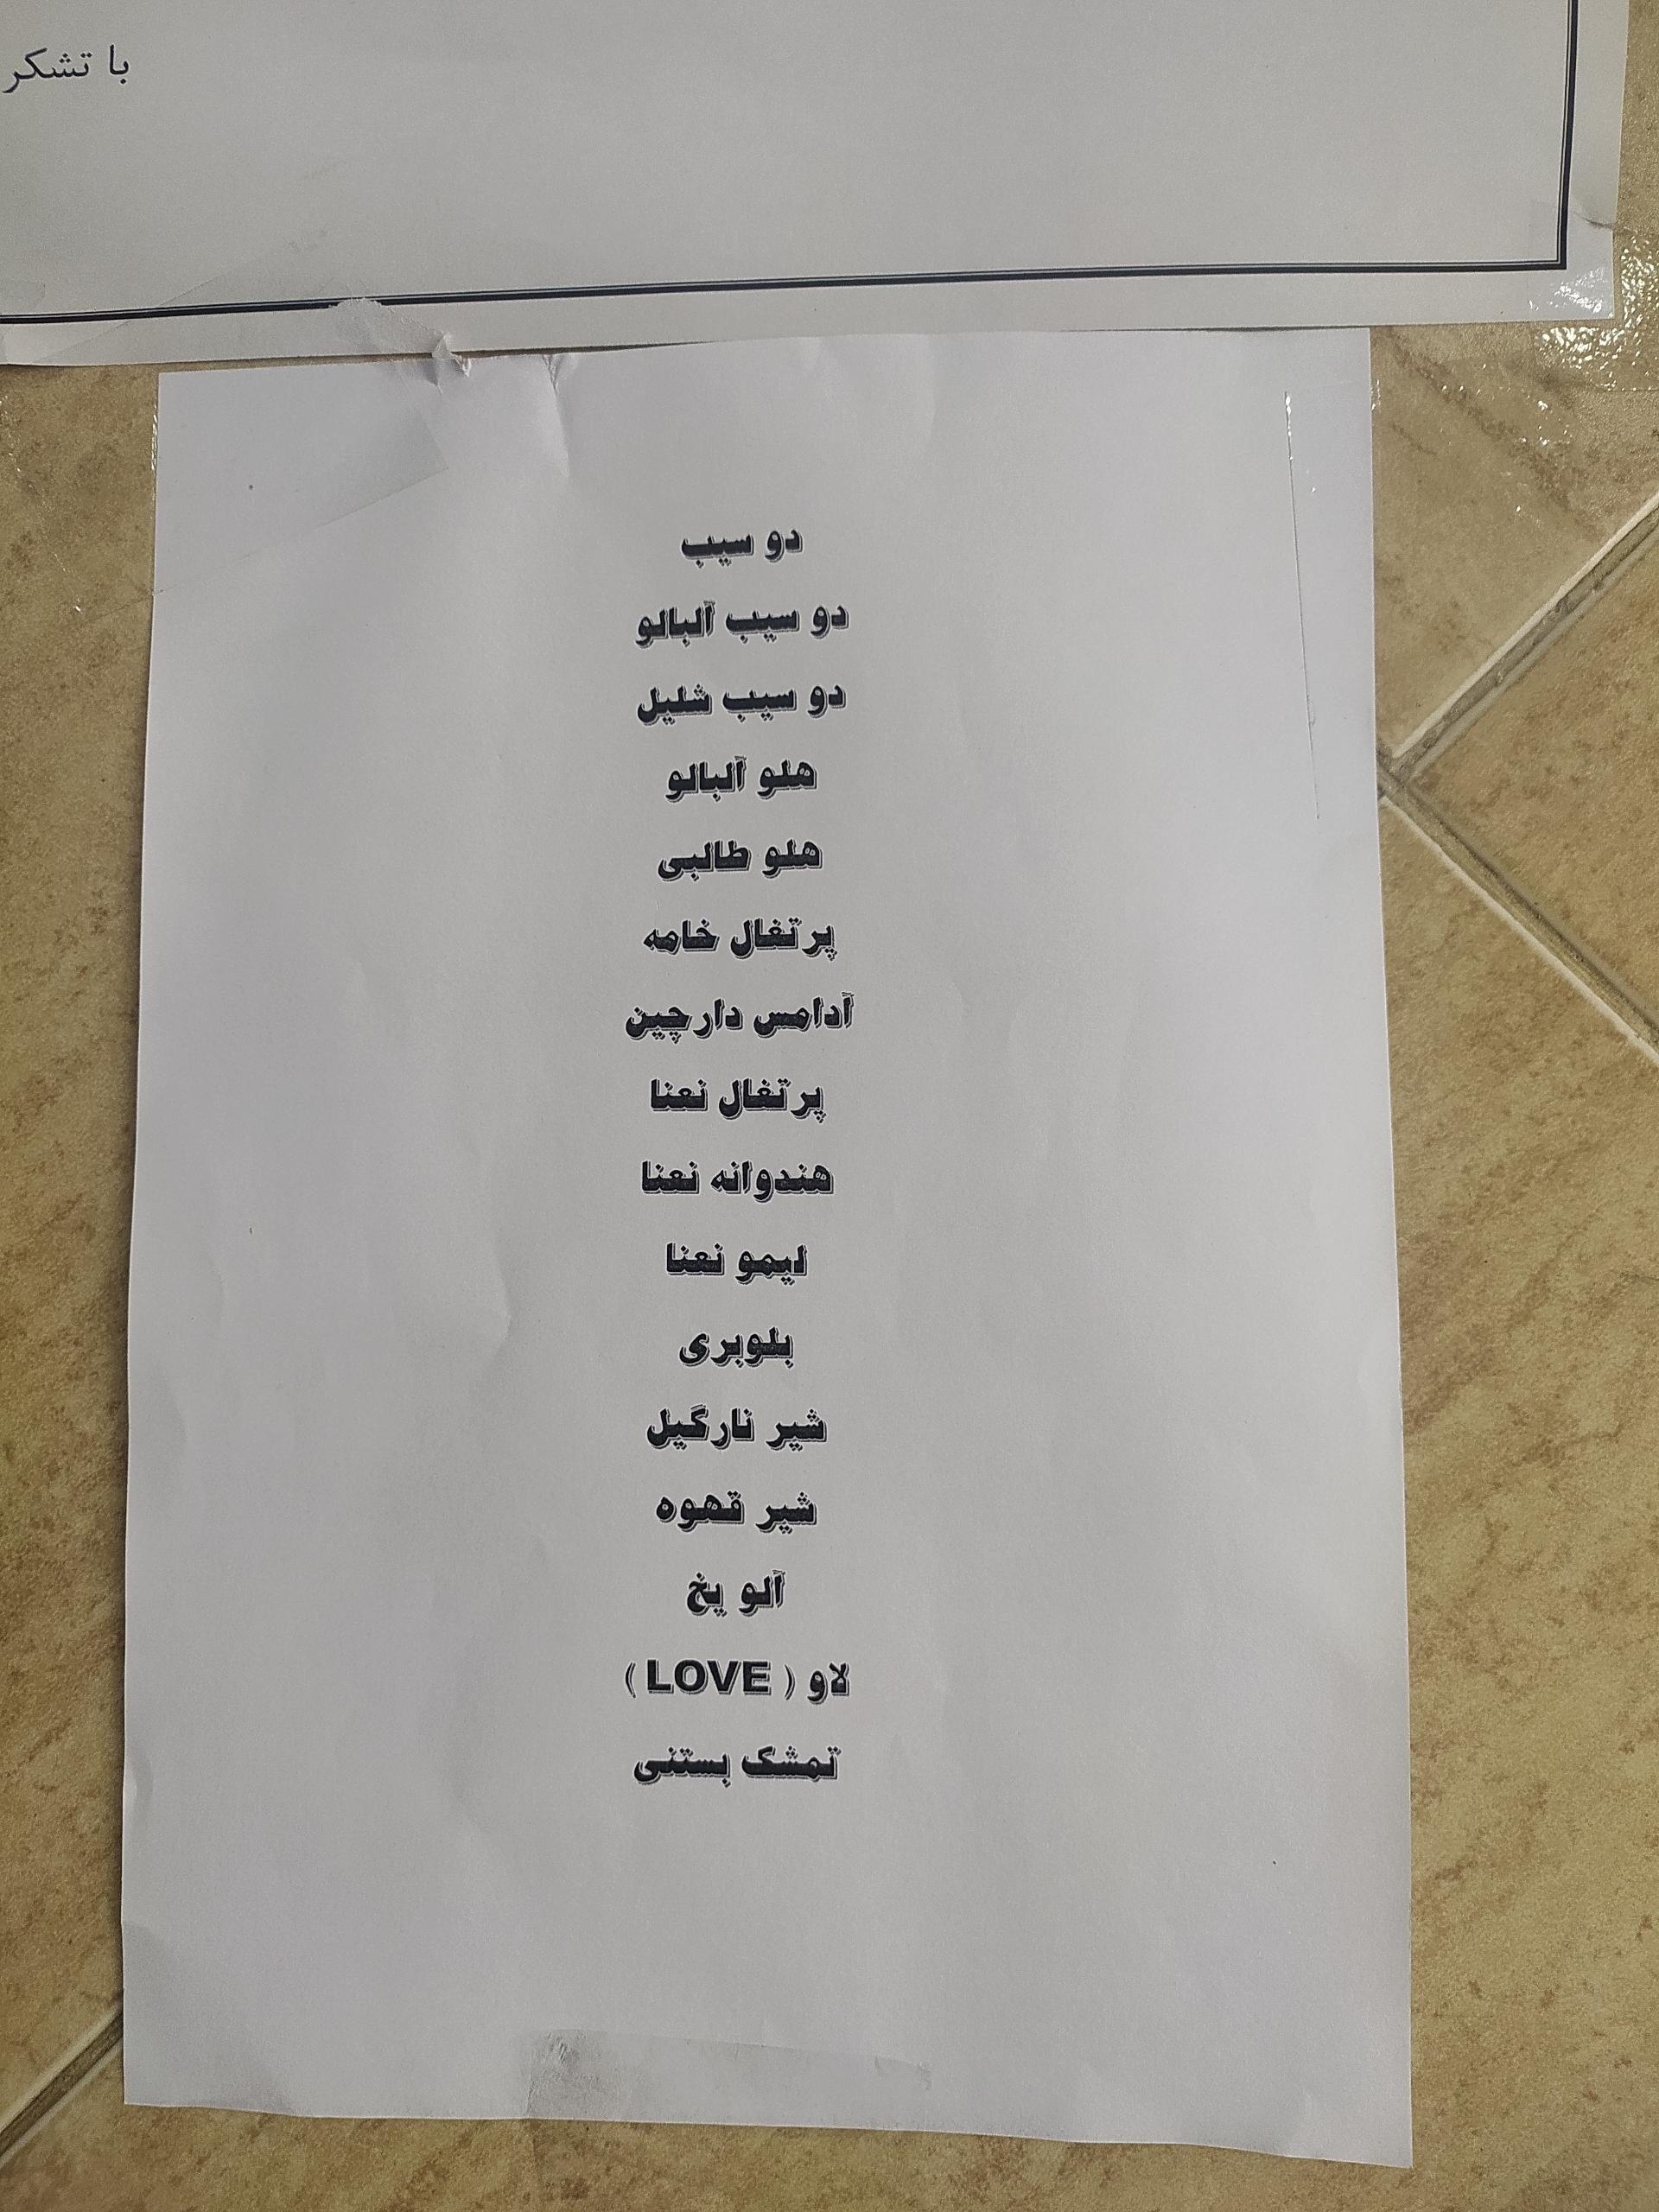 با تشکر
دو سیب
دو سیب آلبالو
دو سیب شلیل
هلو آلبالو
هلو طالبی
پرتغال خامه
آدامس دارچین
پرتغال نعنا
هندوانه نعنا
لیمو نعنا
بلوبری
شیر نارگیل
شیر قهوه
آلو یخ
لاو ( LOVE )
تمشک بستنی